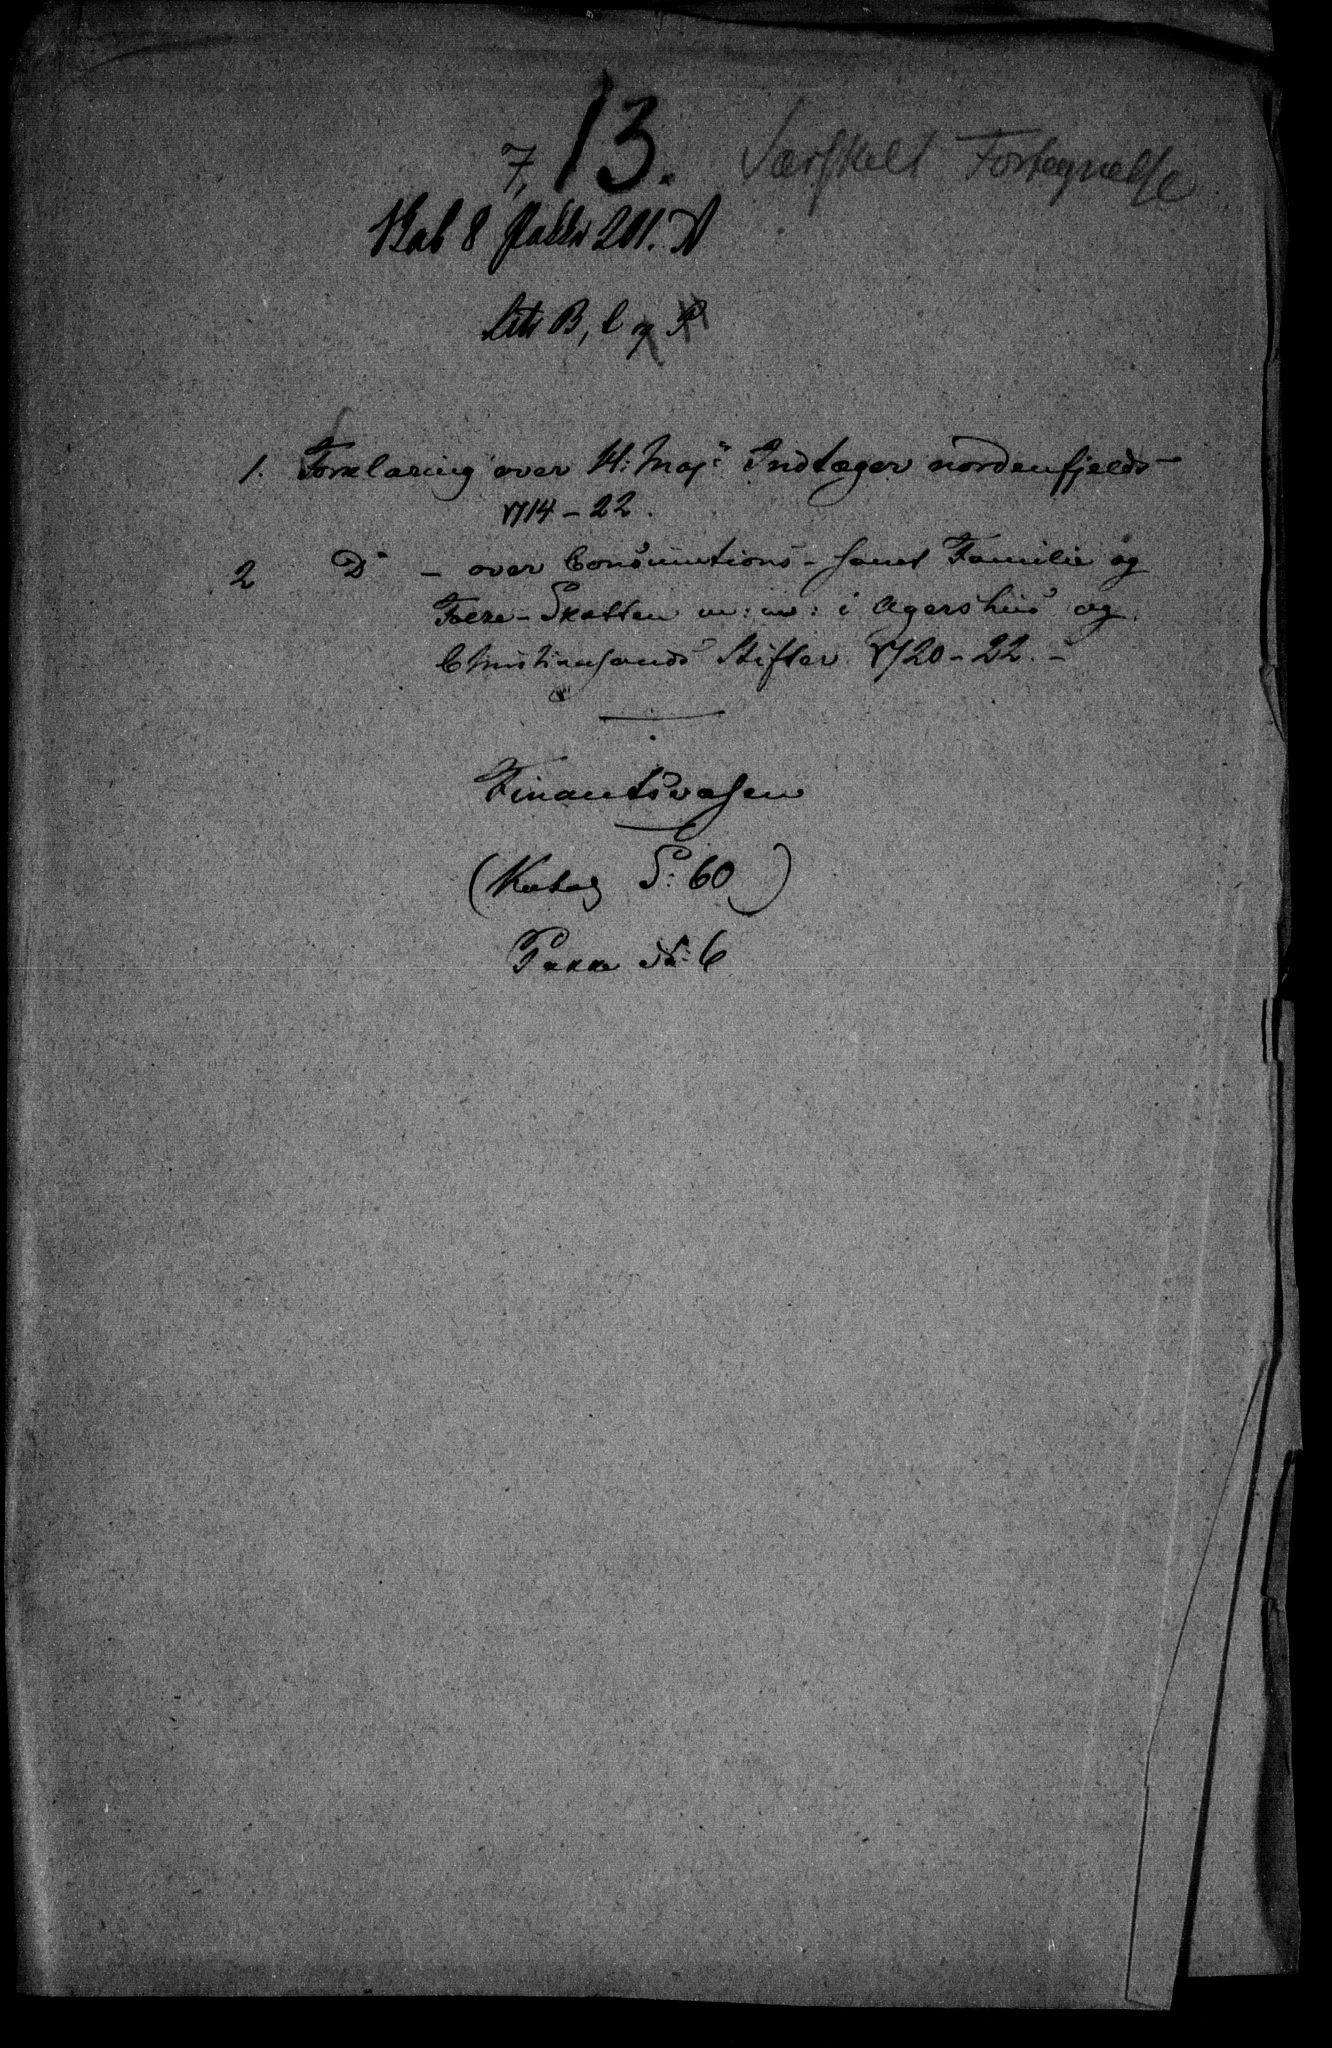 7, 13. Særskelt Fortegnelse
Skab 8 Pakke 201. A
Litr B, C og P
1. Forklaring over H: Maj:s Indtægter nordenfjelds
1714-22.
2 Do - over Consumtions- samt Familie og
Folke-Skatten m: m: i Agershuus og
Christiansands Stifter 1720-22.-
Finantsvæsen
(Katal S: 60)
Pakke No: 6